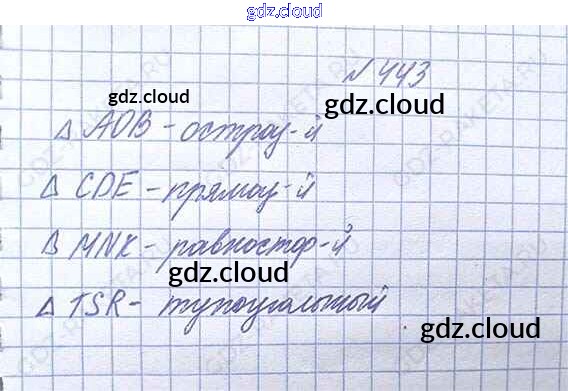 gdz.cloud
№ 443
gdz.cloud gdz.cloud
△ AOB - остроу-й
△ CDE - прямоу-й
△ MNK - равностор-й
gdz.cloud
△ TSR - тупоугольный
gdz.cloud